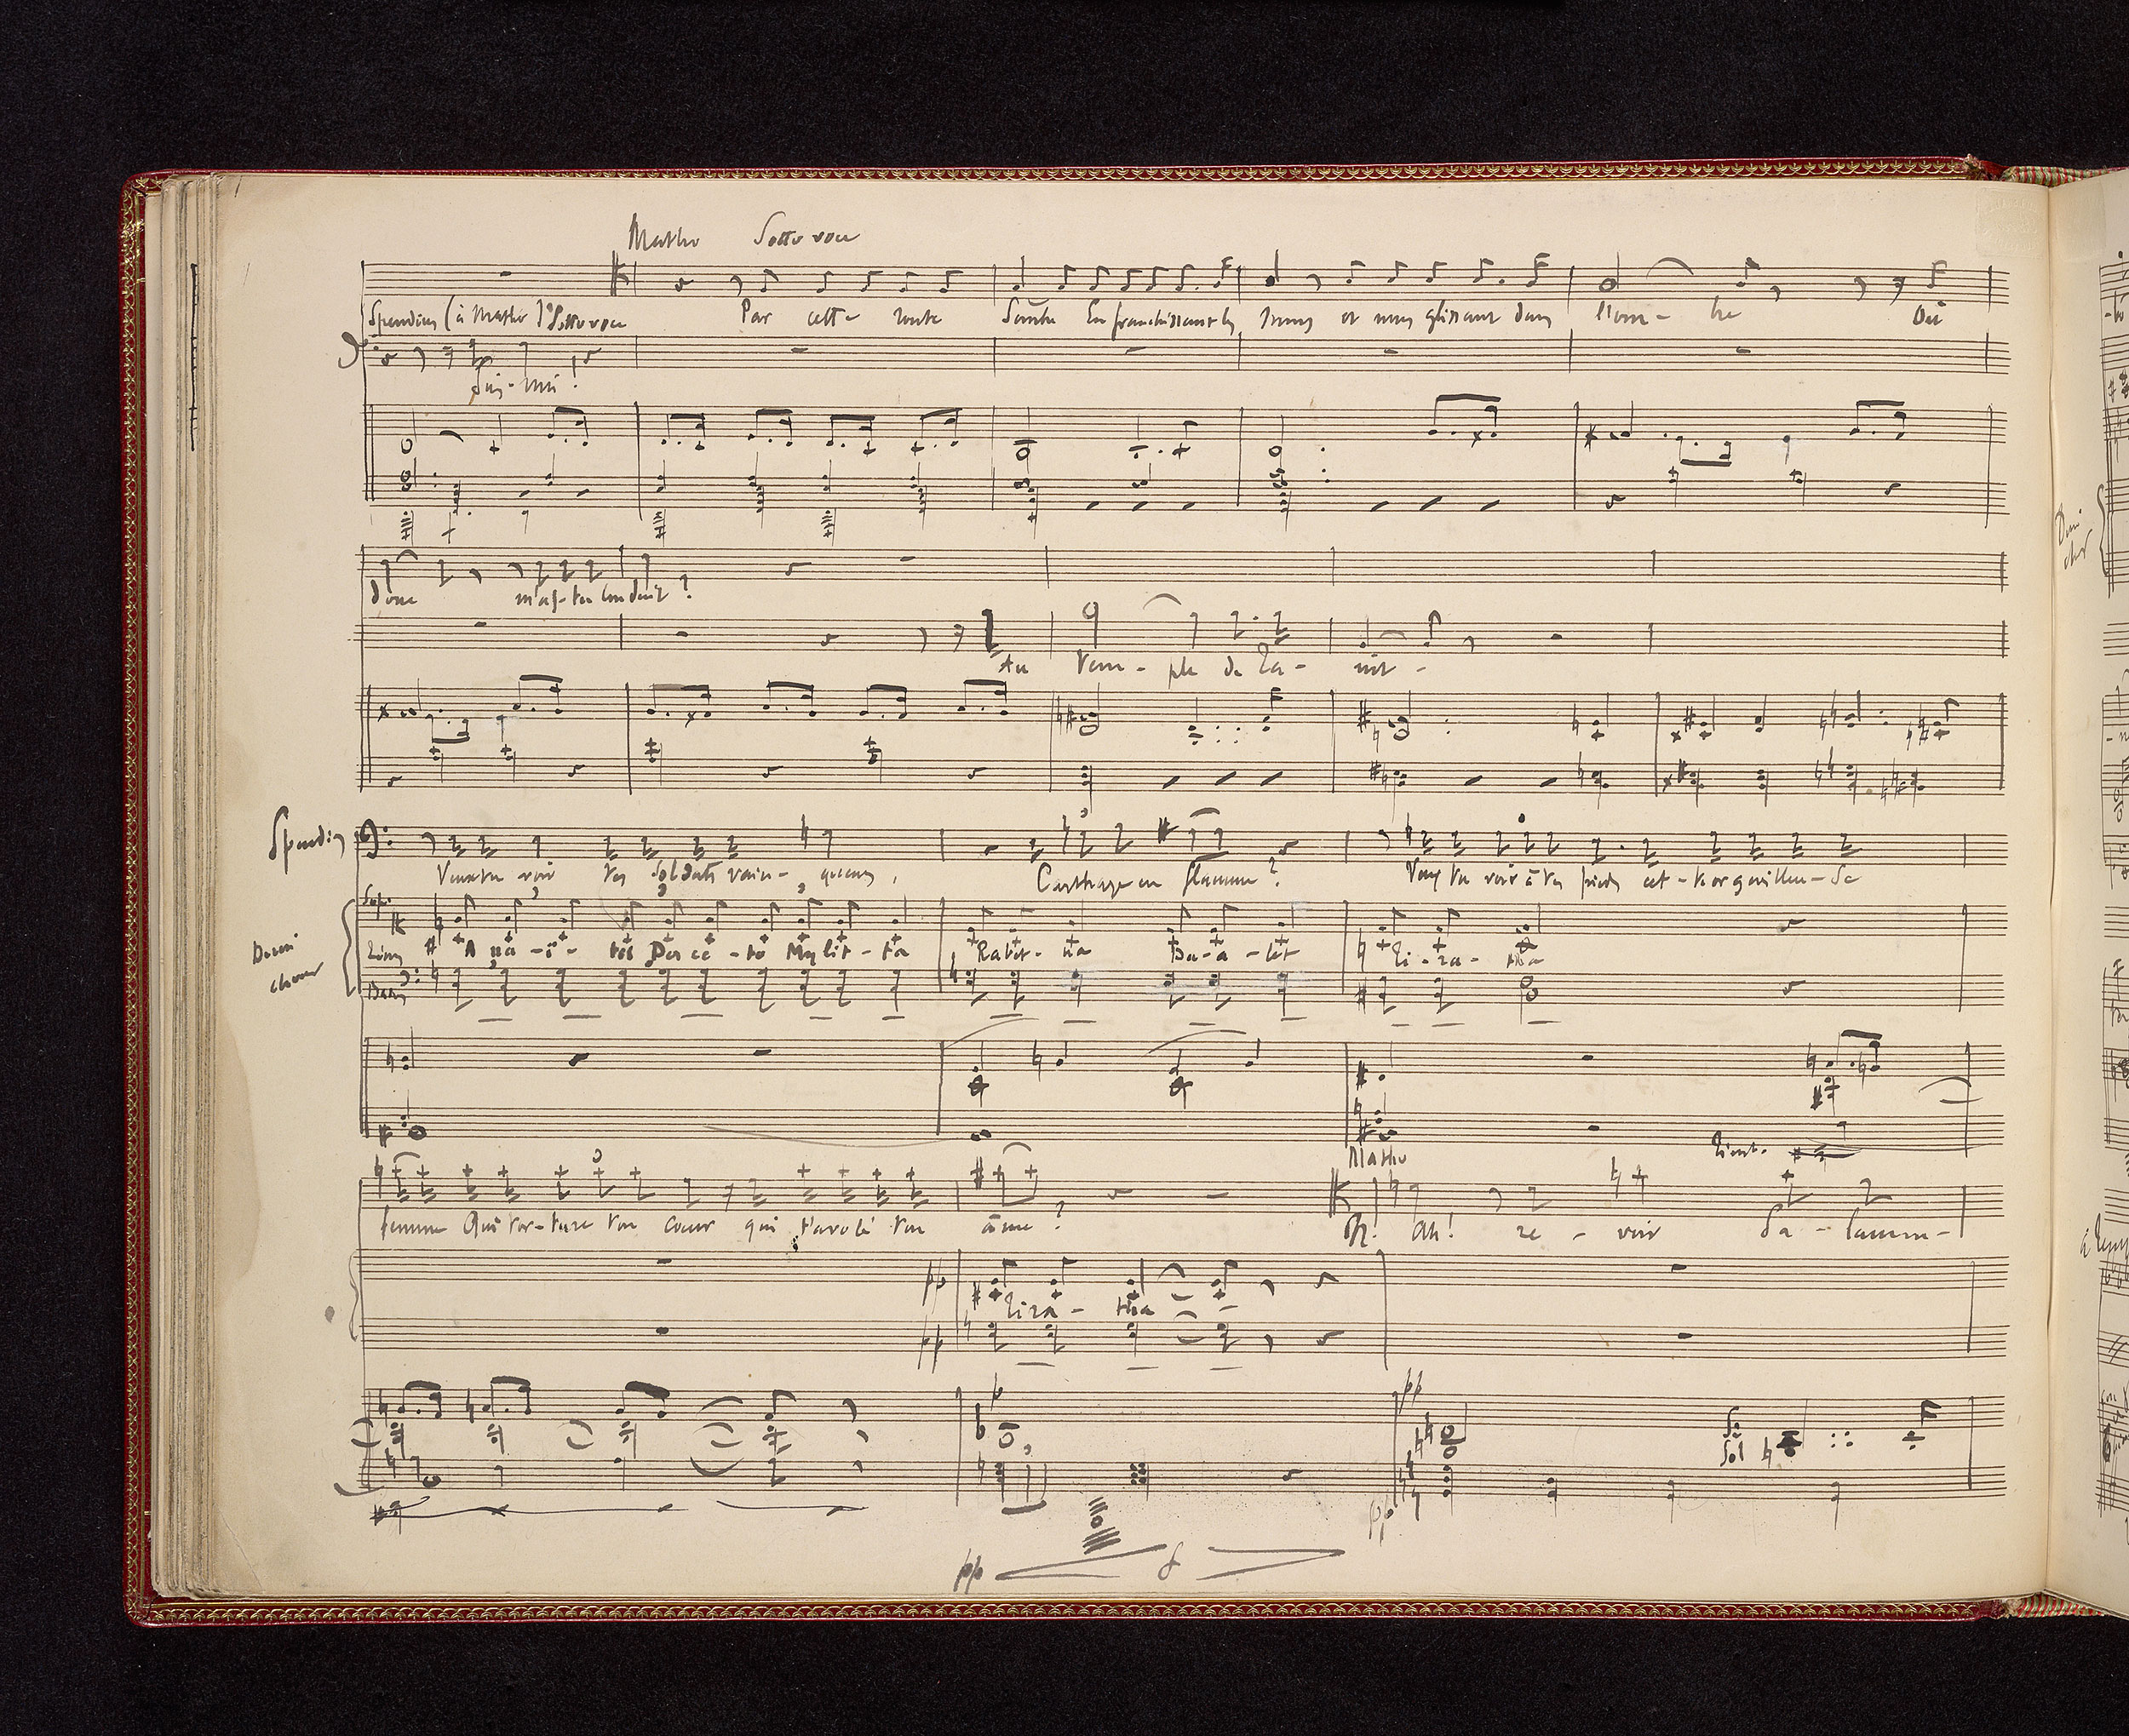 Matho Sotto voce
Spendius (à Matho) Sotto voce Par cette route Sombre En franchissant les murs et nous glissant dans l'om - bre Où
Suis - moi !
donc m'as - tu conduit ?
Au Tem - ple de Ta - nit -
Spendius
Veux tu voir tes soldats vain - queurs, Carthage en flamme ? Veux tu voir à tes pieds cet - te orgueilleu - se
Sop.
Demi chœur
Ténors A na - ï - tis Der cé - to My lit - ta Rabet - na Ba - a - let Ti - ra - tha
Basses
Matho
femme Qui tor - ture ton cœur qui t'a volé ton âme ? Ah! re - voir Sa - lamm -
pp Tira - tha
pp
pp
sol
pp
pp